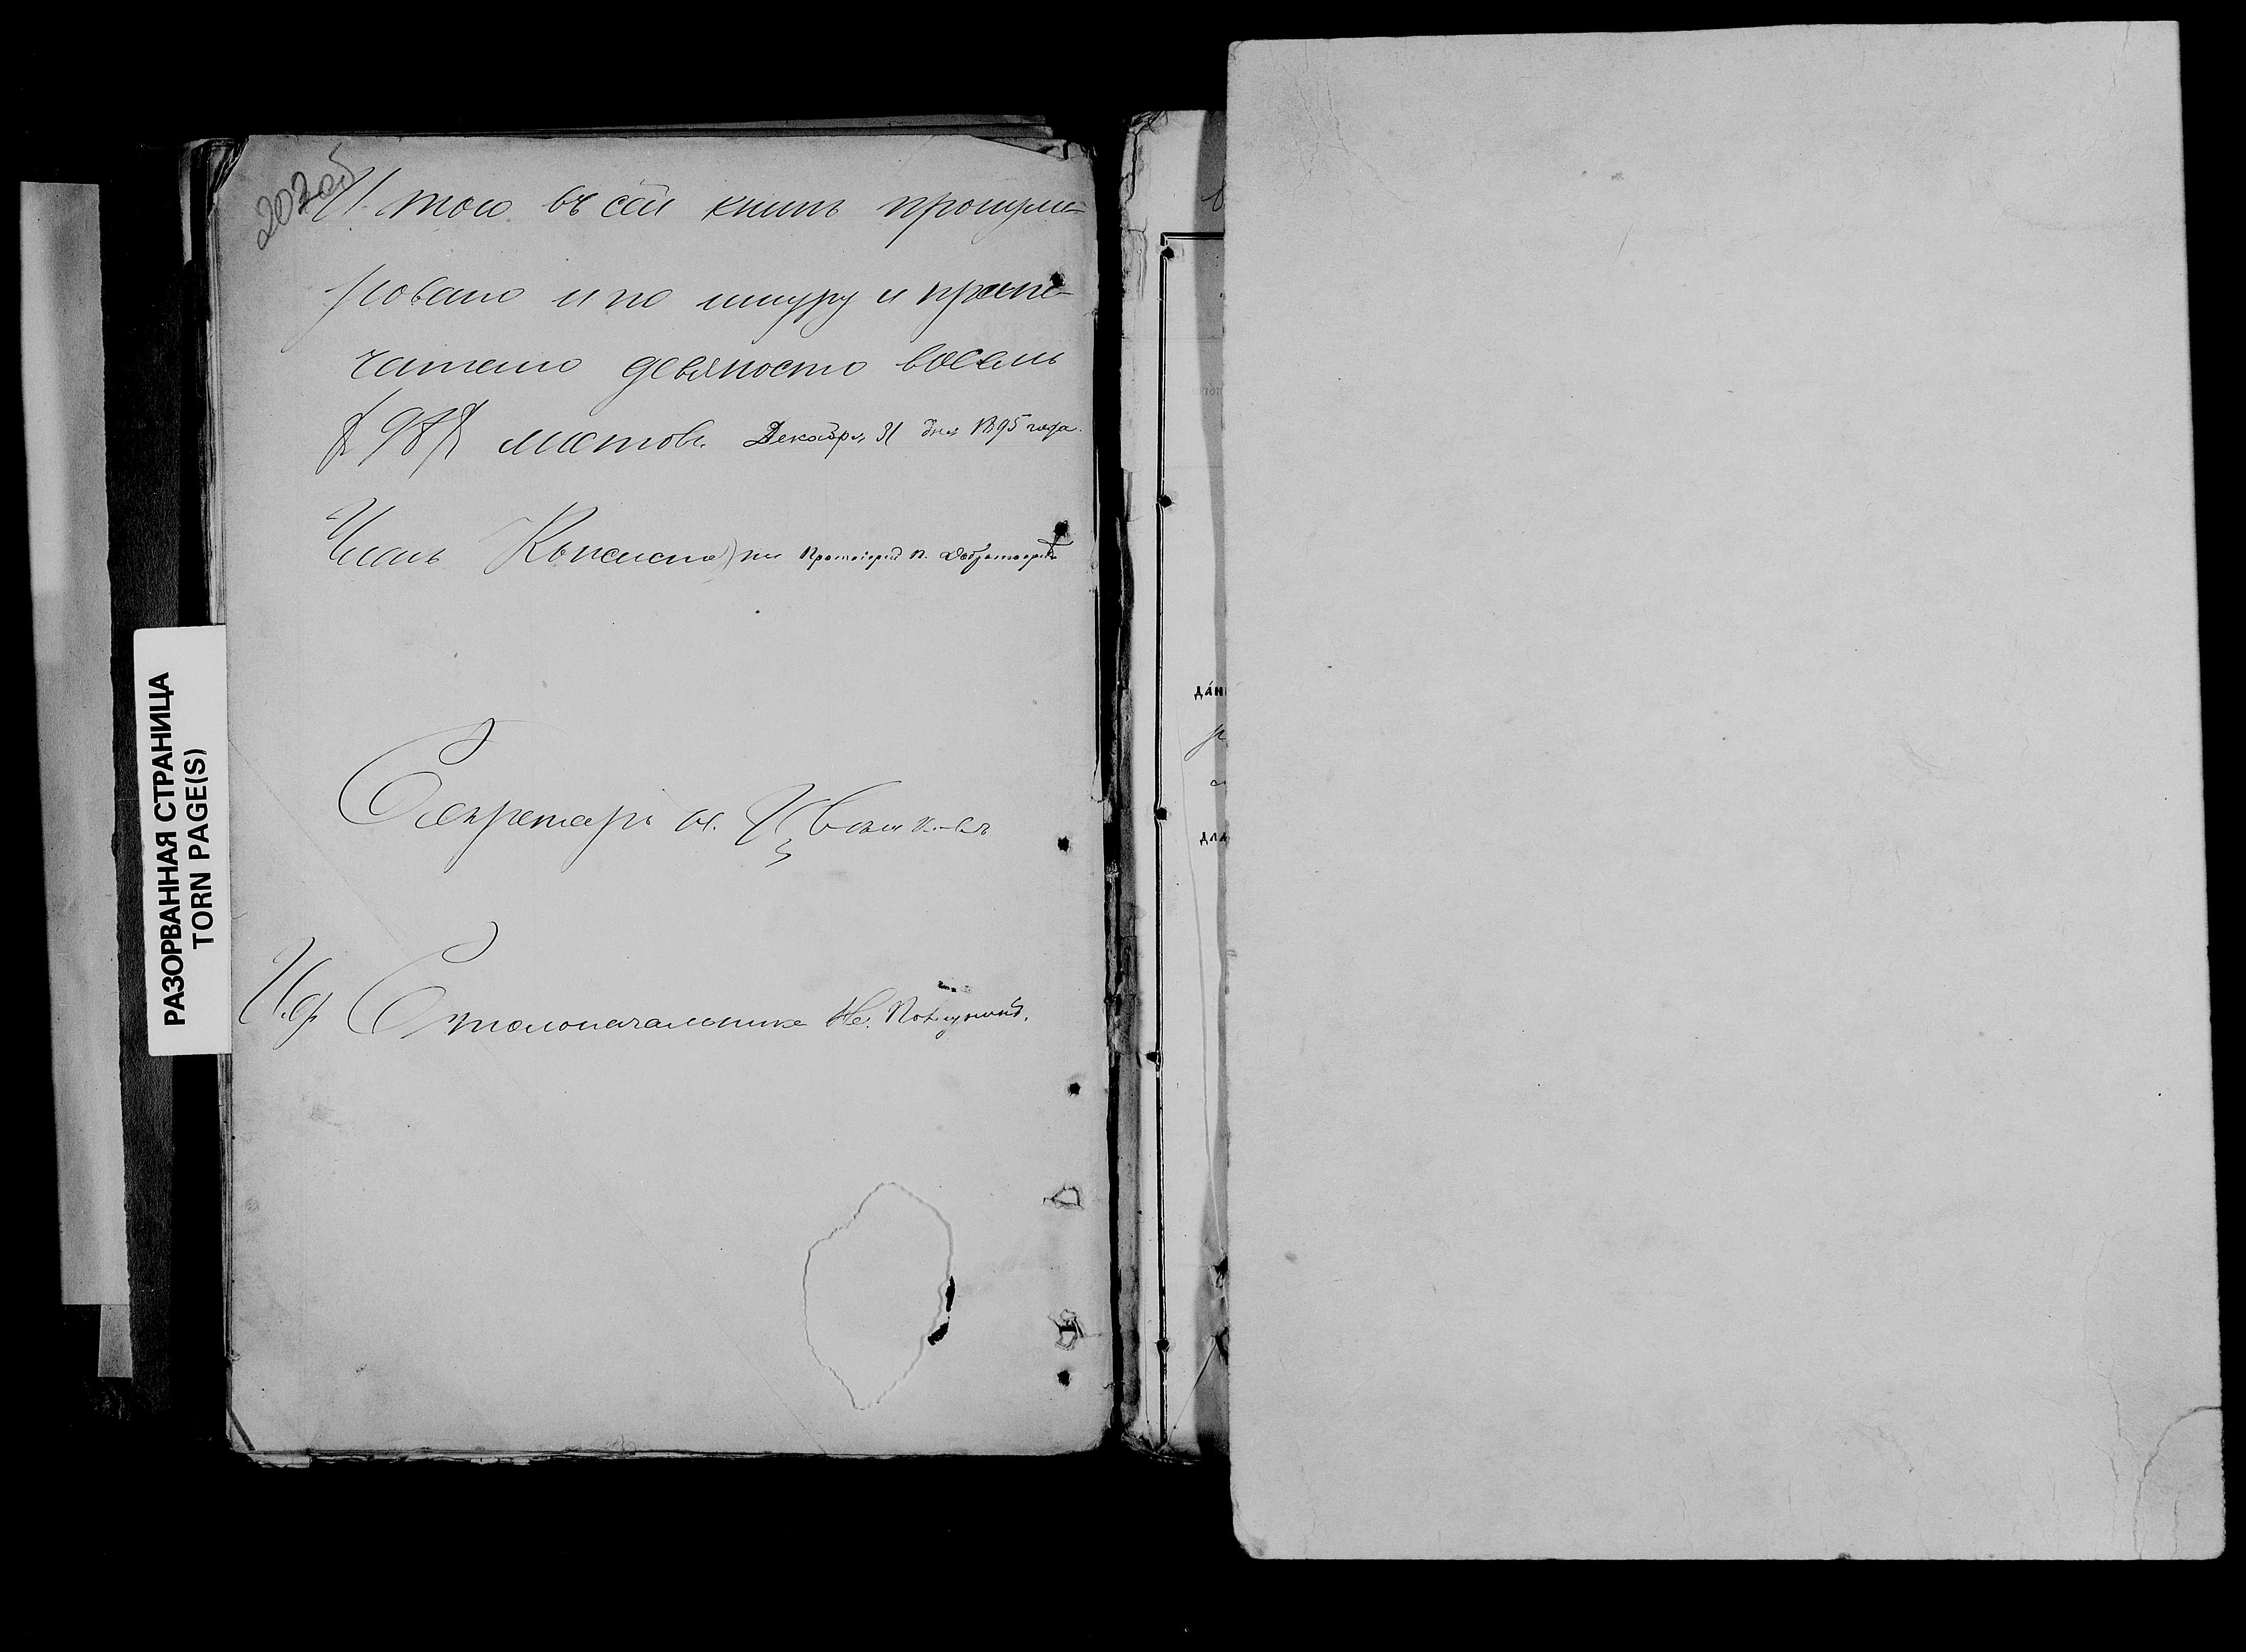 202об
Итого въ сей книгѣ пронуме-
ровано и по шнуру и припе-
чатано девяносто восемь
/98/ листовъ. Декабря 31 дня 1895 года.
Членъ Консисторіи Протоіерей П.
Секретарь И.
И.д. Столоначальника
РАЗОРВАННАЯ СТРАНИЦА
TORN PAGE(S)